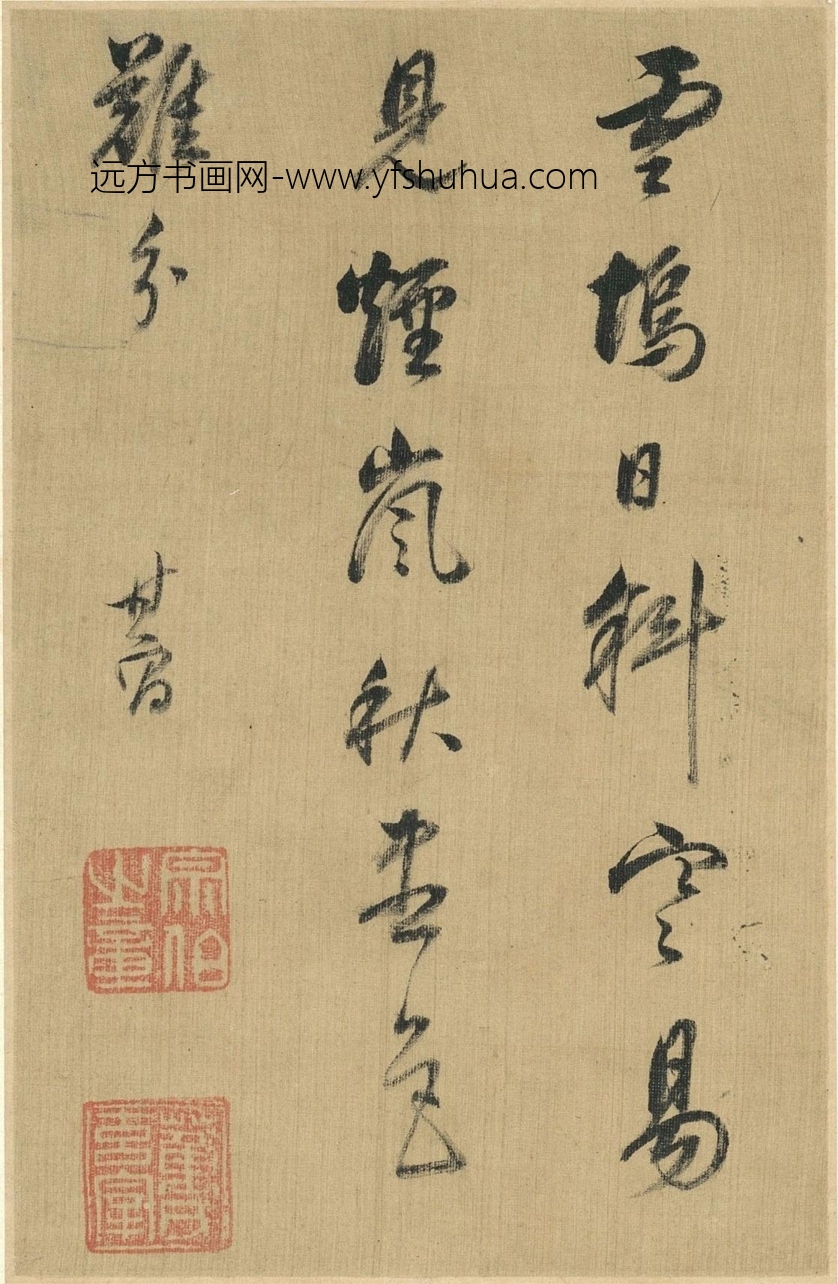 雲塢日斜空易
見煙嵐秋畫色
難分
其昌
宗伯之章
远方书画网-www.yfshuhua.com